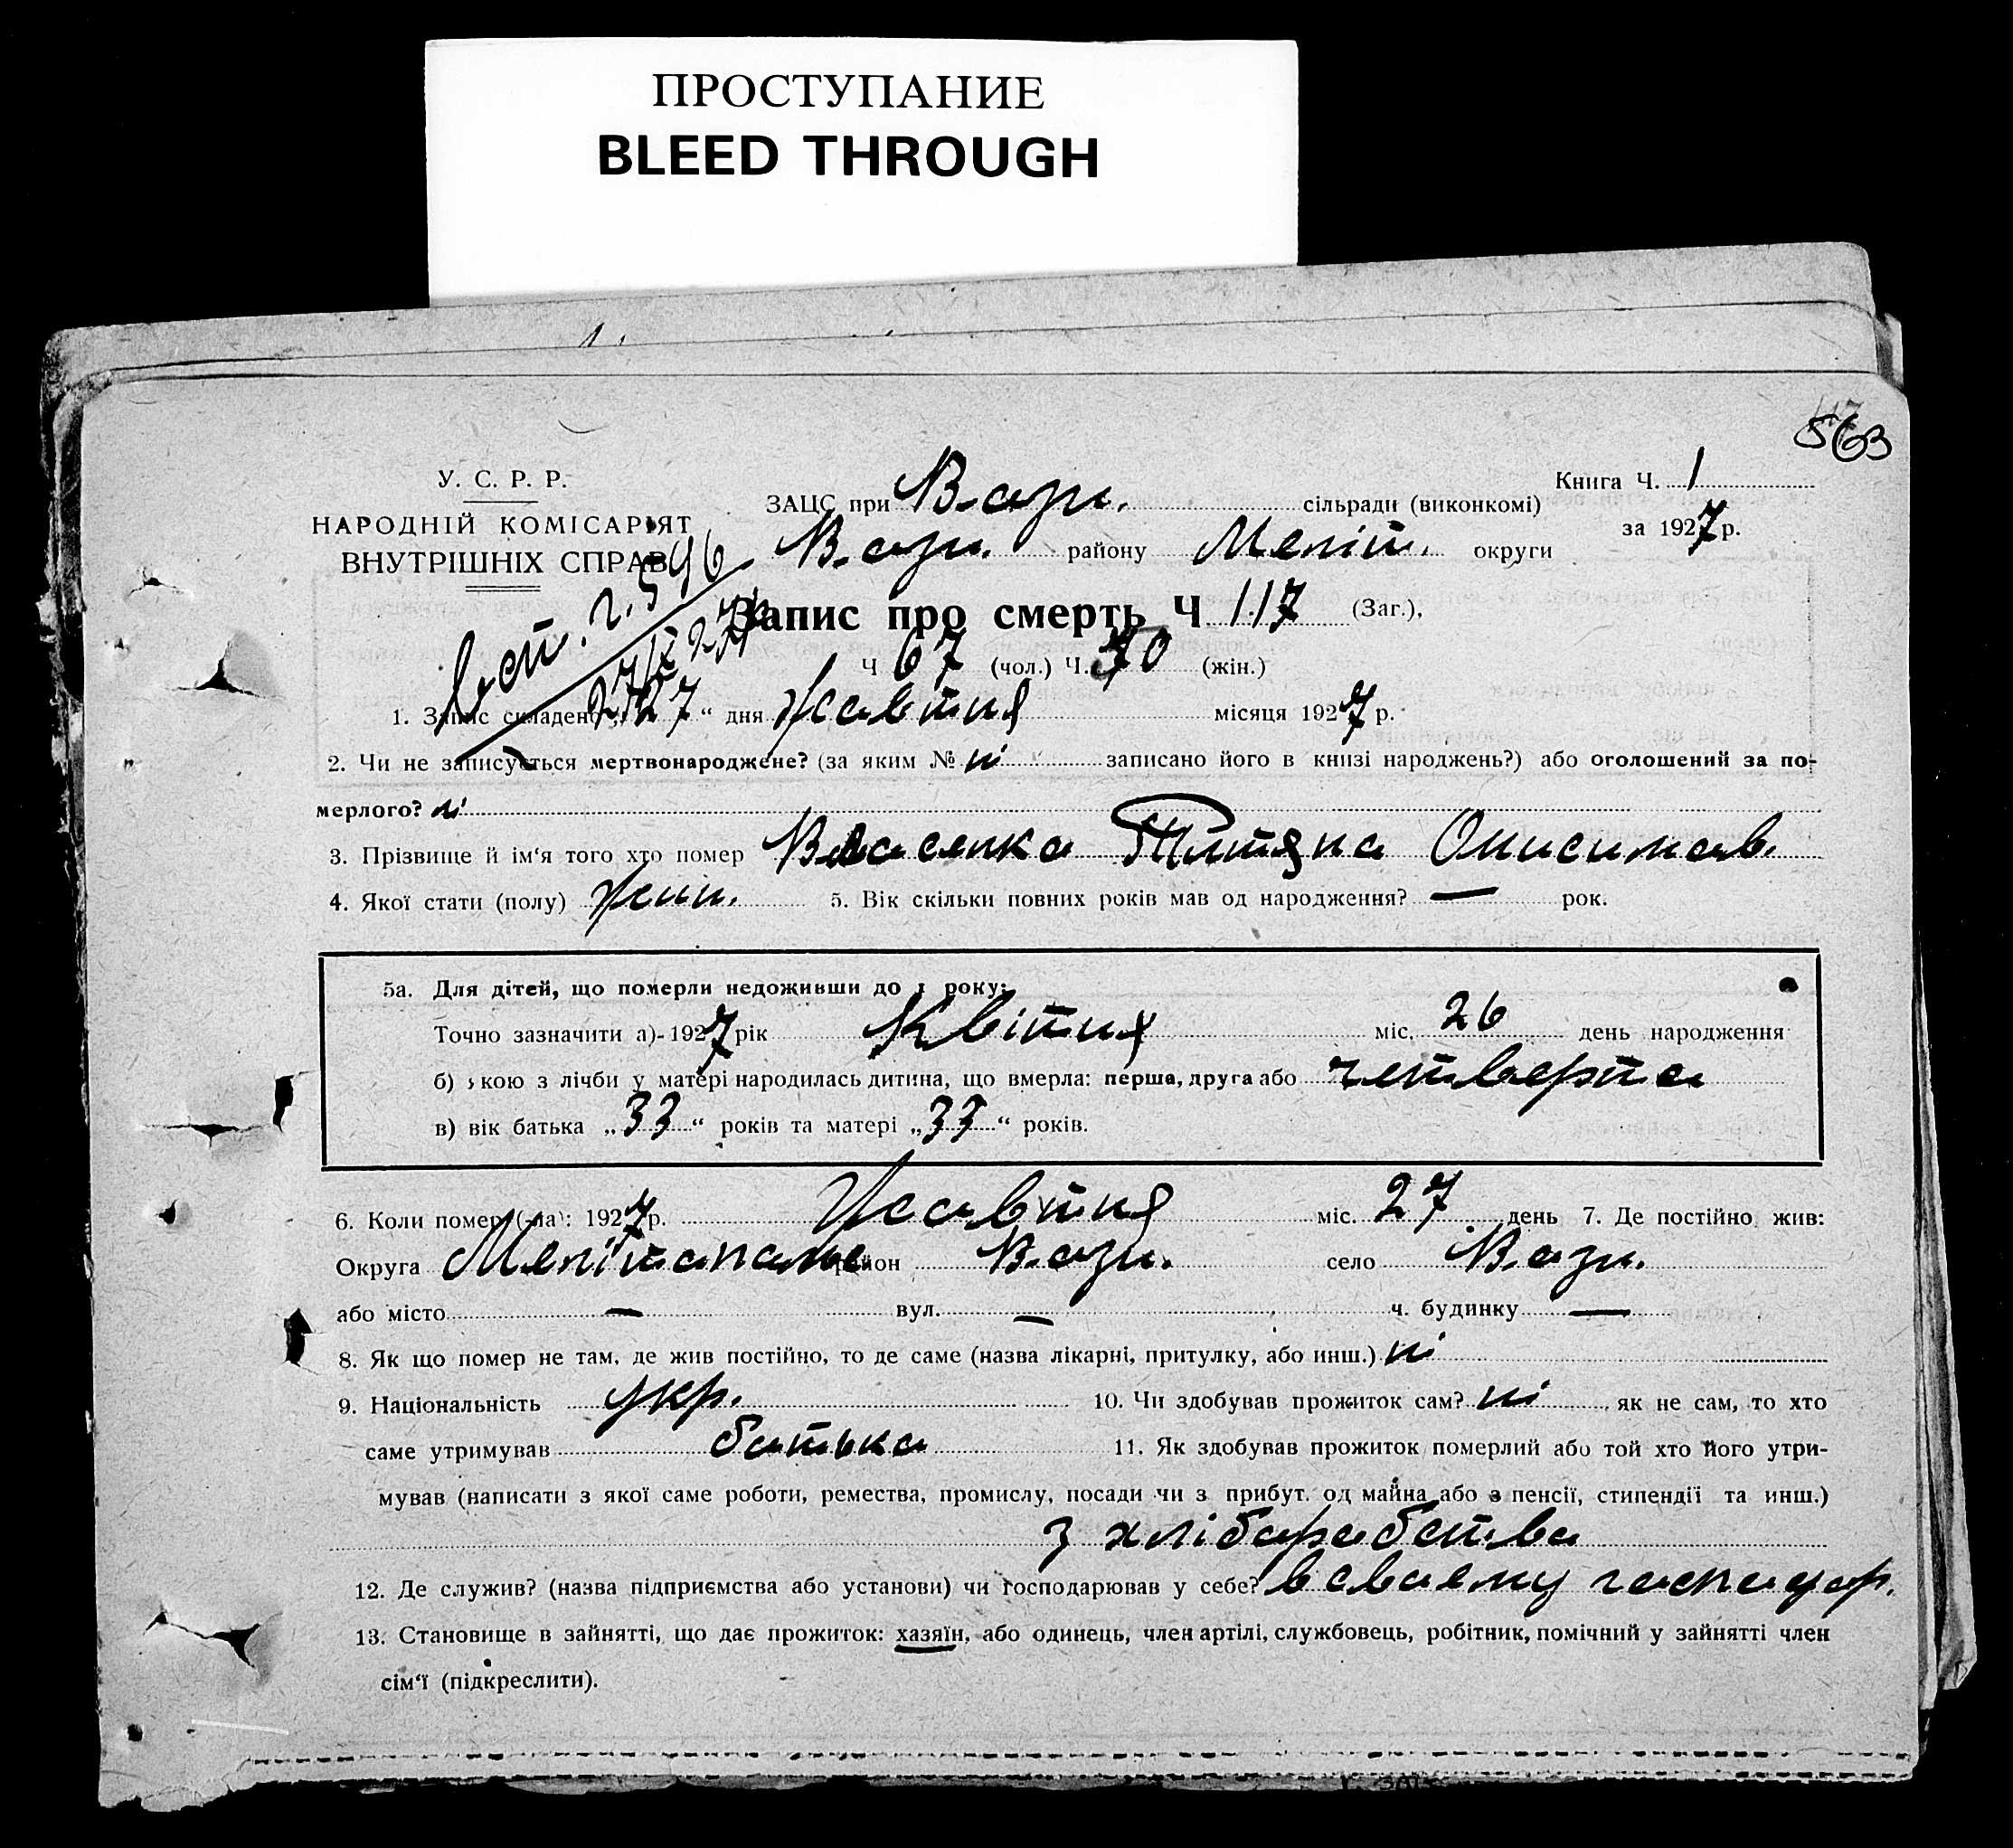 ПРОСТУПАНИЕ
BLEED THROUGH
563
У. С. Р. Р.
НАРОДНІЙ КОМІСАРІЯТ
ВНУТРІШНІХ СПРАВ
Книга Ч. 1
за 1927 р.
ЗАЦС при В-Озн. сільради (виконкомі)
В.-Озн. району Меліт. округи
Запис про смерть Ч 117 (Заг.),
Ч 67 (чол.) Ч. 50 (жін.)
1. Запис складено „27“ дня Жовтня місяця 1927 р.
2. Чи не записується мертвонароджене? (за яким № ні записано його в книзі народжень?) або оголошений за по-
мерлого? ні
3. Прізвище й ім‘я того хто помер Власенко Тітяна Онисимов.
4. Якої стати (полу) жін. 5. Вік скільки повних років мав од народження? — рок.
5а. Для дітей, що померли недоживши до 1 року:
Точно зазначити а)-1927 рік Квітня міс. 26 день народження
б) якою з лічби у матері народилась дитина, що вмерла: перша, друга або четверта
в) вік батька „33“ років та матері „33“ років.
6. Коли помер (-ла): 1927 р. Жовтня міс. 27 день 7. Де постійно жив:
Округа Меліт район В.-Озн. село В.-Озн.
або місто — вул. — ч. будинку —
8. Як що помер не там, де жив постійно, то де саме (назва лікарні, притулку, або инш.) ні
9. Національність укр. 10. Чи здобував прожиток сам? ні як не сам, то хто
саме утримував батько 11. Як здобував прожиток померлий або той хто його утри-
мував (написати з якої саме роботи, ремества, промислу, посади чи з прибут. од майна або з пенсії, стипендії та инш.)
з хліборобства
12. Де служив? (назва підприємства або установи) чи господарював у себе? в своєму господар.
13. Становище в зайнятті, що дає прожиток: хазяїн, або одинець, член артілі, службовець, робітник, помічний у зайнятті член
сім‘ї (підкреслити).